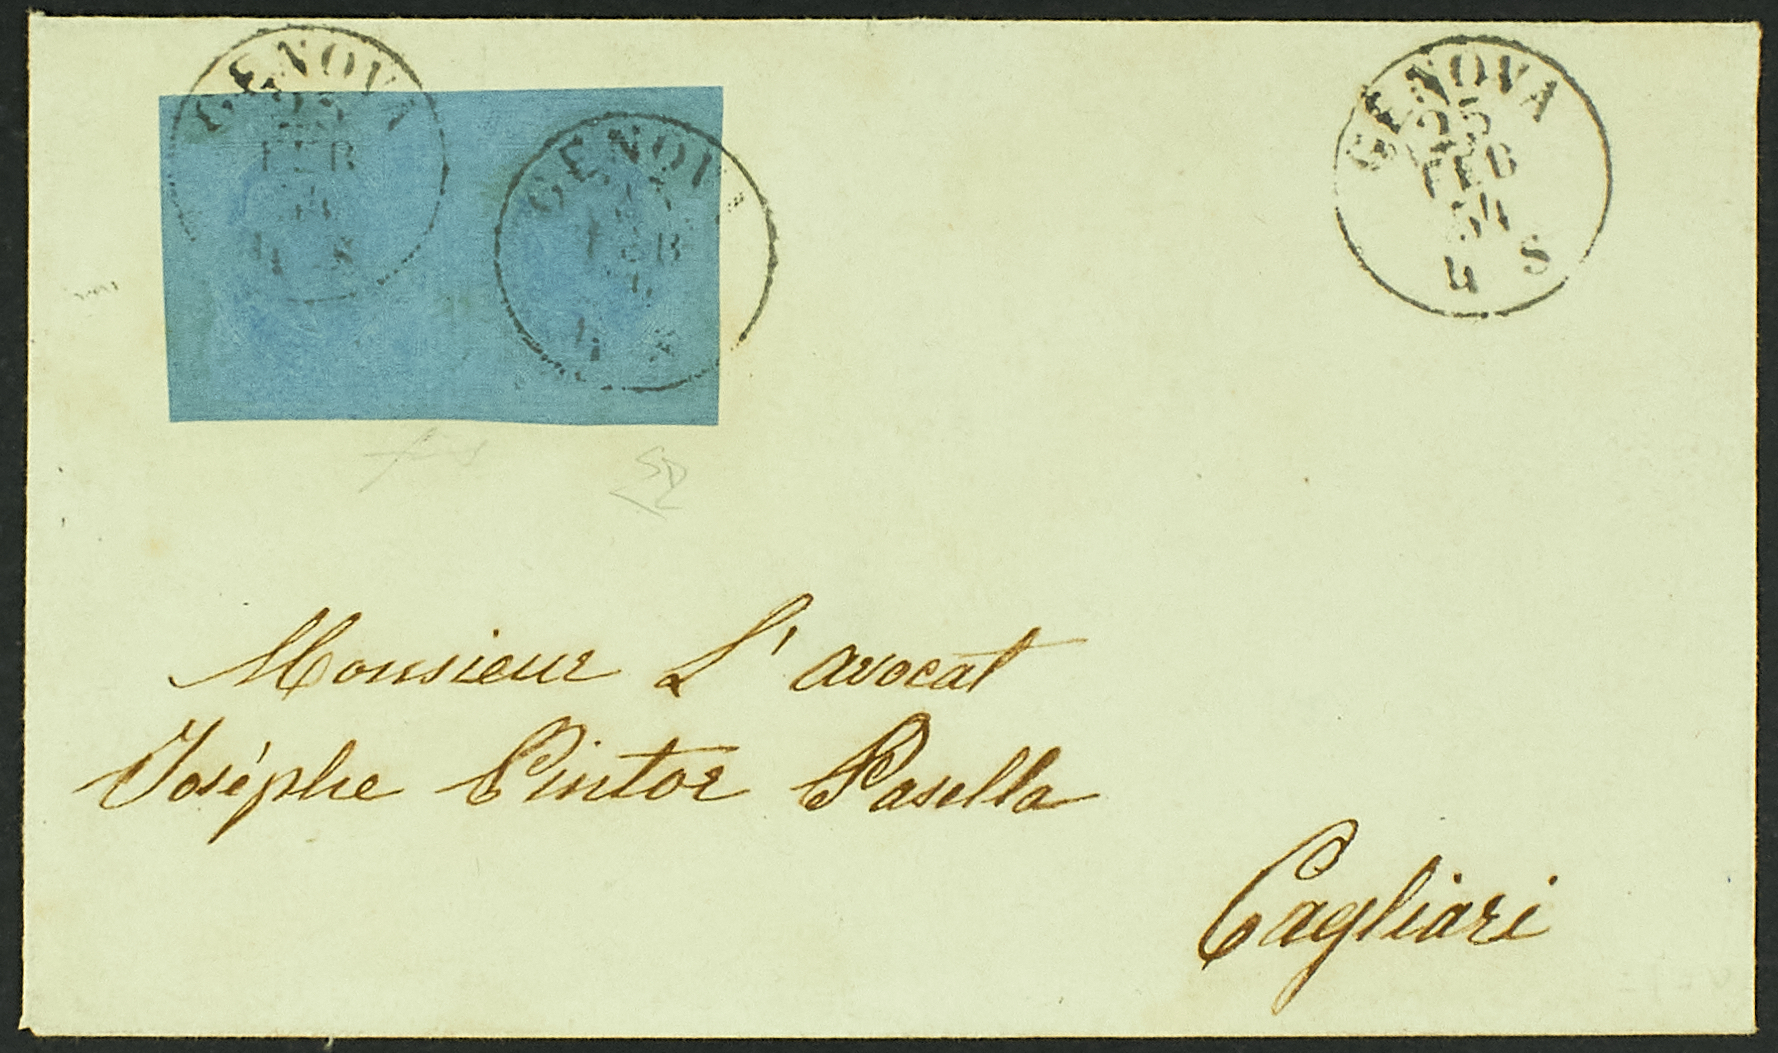 GENOVA
FEB
4 S
GENOVA
FEB
4 S
GENOVA
25
FEB
54
4 S
SD
Monsieur L' avocat
Joséphe Pintor Pasella
Cagliari